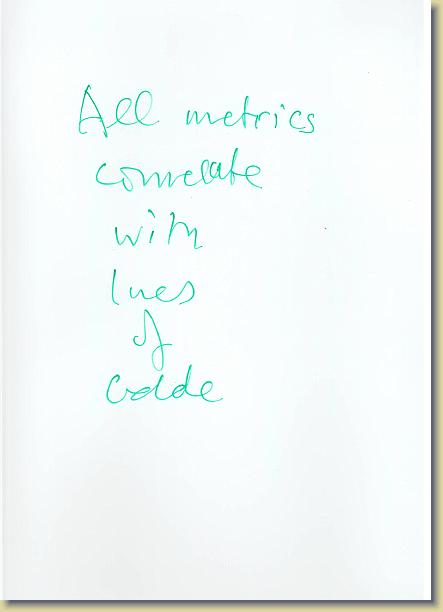 All metrics
correlate
with
lines
of
code